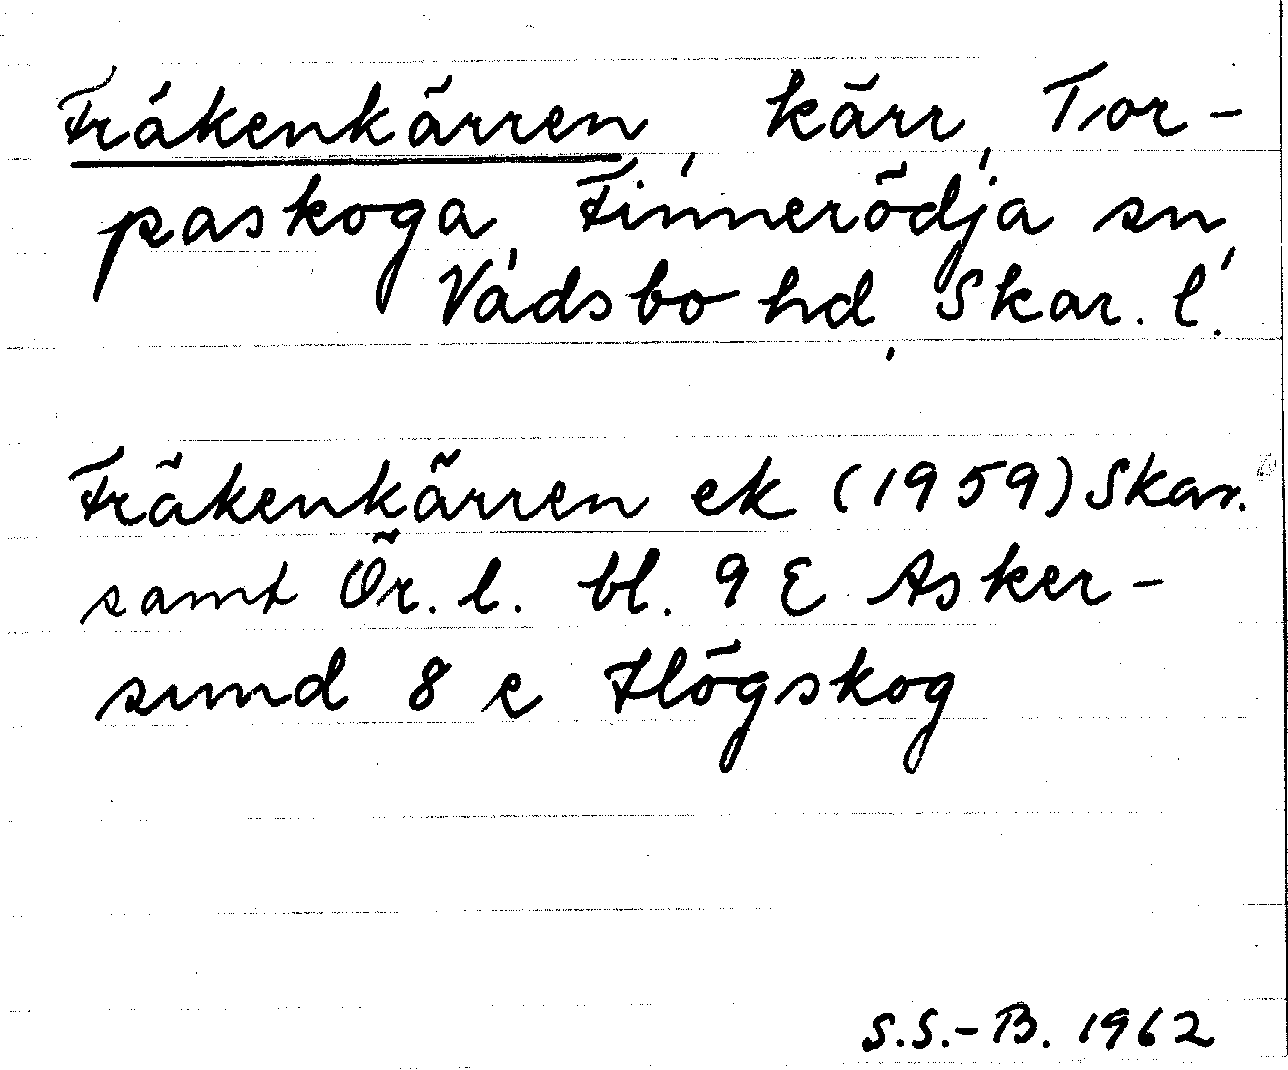 Fräkenkärren, kärr, Tor-
paskoga, Finnerödja sn,
Vadsbo hd, Skar. l.
Fräkenkärren ek (1959) Skar.
samt Ör. l. bl. 9 E Asker-
sund 8 c Högskog
S.S.-B. 1962